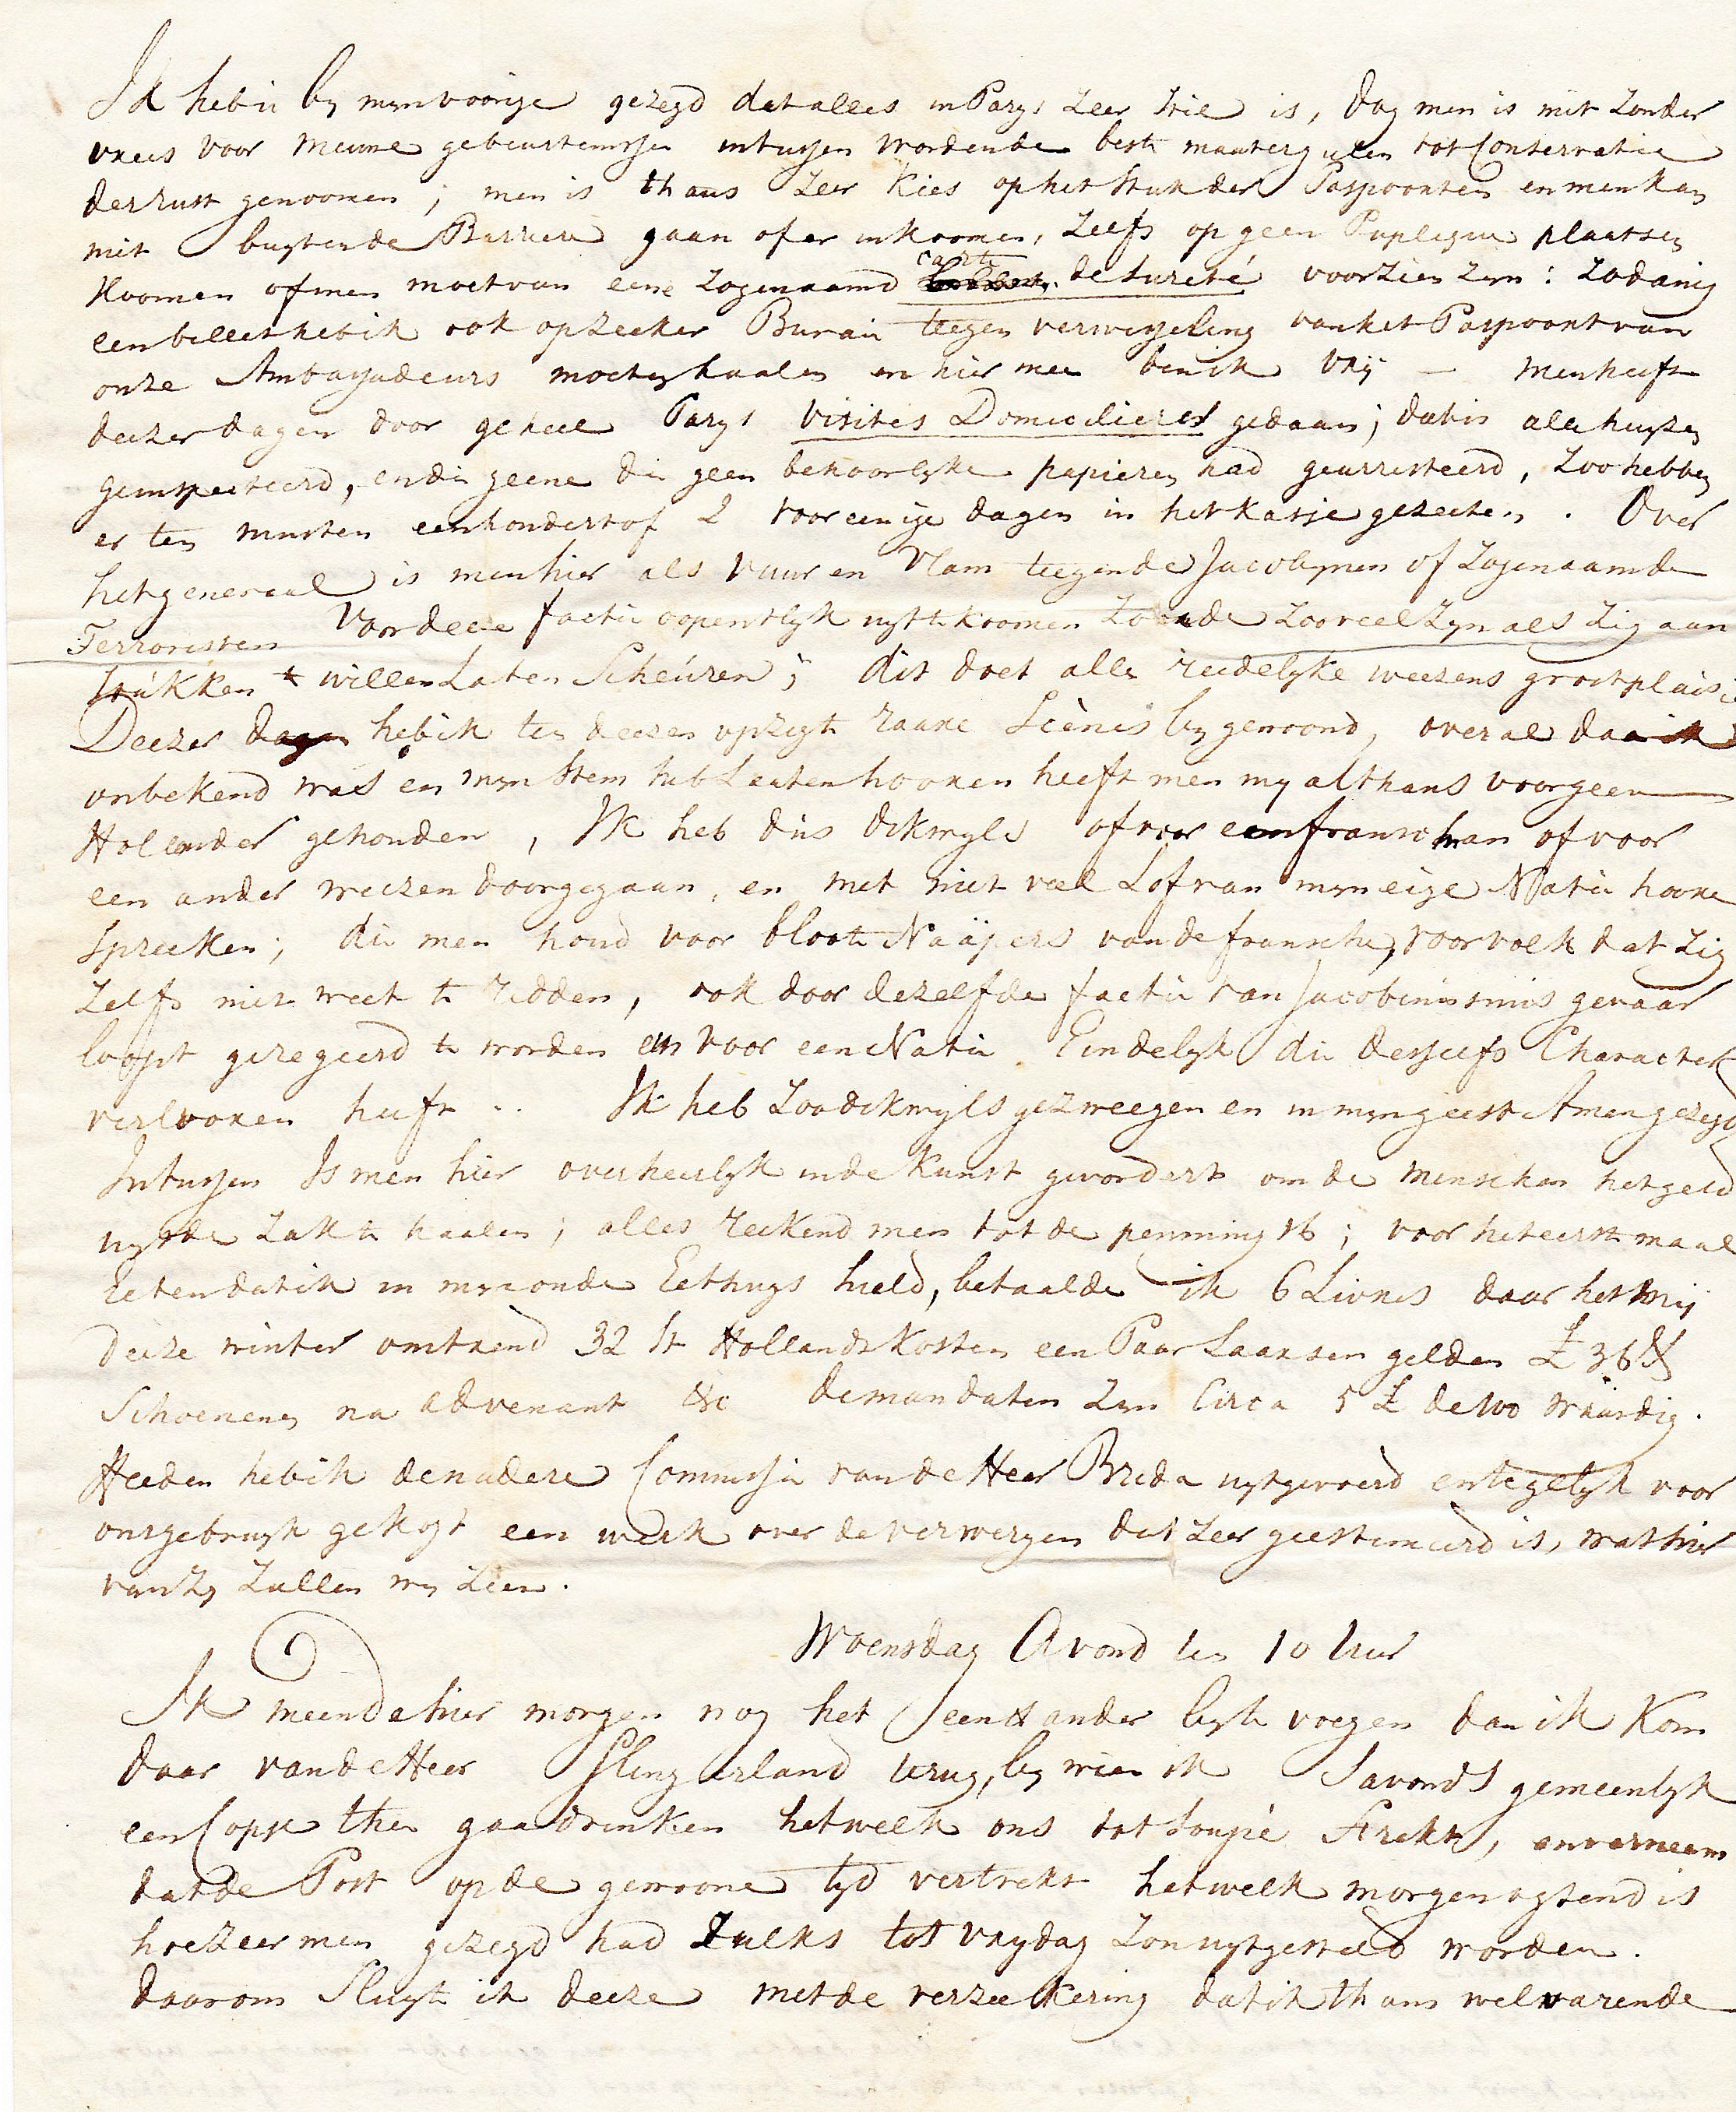 Ik heb u by myn voorige gezegd dat alles in Parys zeer stil is, dog men is niet zonder
vrees voor nieuwe gebeurtenissen intussen worden de beste maatregulen tot Conservatie
der rust genoomen ; men is thans zeer kies op het stuk der Paspoorten en men kan
niet buyten de Barriere gaan of er inkoomen, zelfs op geen Puplique plaatsen
koomen of men moet van eene zogenaamd carte de sureté voorzien zyn : zodanig
een billet heb ik ook op zeeker Burau teegen verwisseling van het Paspoort van
onze Ambassadeurs moeten haalen en hier mee ben ik vrij — men heeft
deezer dagen door geheel Parys visites Domicilieres gedaan ; dat is alle huyzen
geinspecteerd, en die geene die geen behoorlyke papieren had gearresteerd, zoo hebben
er ten minsten een hondert of 2 voor eenige dagen in het kasje gezeeten . Over
het generaal is men hier als vuur en vlam teegen de Jacobynen of zogenaamde
Terroristen voor deeze factie oopentlyk uyt te koomen zoude zoo veel zyn als zig aan
stukken te willen laten Scheuren ; dit doet alle reedelyke weezens groot plaisir
Deezer dagen heb ik ten deezen opzigte raare Scènes bygewoond, overal daar ik
onbekend was en myn stem heb laaten hooren heeft men my althans voor geen
Hollander gehouden , Ik heb dus dikwyls of voor een fransman of voor
een ander weezen doorgegaan, en met niet veel Lof van myn eige Natie hooren
spreeken ; die men houd voor bloote Naäpers van de fransche, voor volk dat zig
zelfs niet weet te redden, ook door dezelfde factie van Jacobinismus gevaar
loopt geregeerd te worden en voor een Natie Eindelyk die desselfs Character
verlooren heeft .. Ik heb zoo dikwyls gezweegen en in myn geest Amen gezegd
Intussen Is men hier overheerlyk in de kunst gevordert om de menschen het geld
uyt de zak te haalen ; alles reekend men tot de penning 16 ; voor het eerste maal
eeten dat ik in myn oude Eethuys hield, betaalde ik 6 Livres daar het mij
deeze winter omtrend 32 st Hollands kosten een Paar Laarsen gelden £ 36
Schoenen na advenant &c de mandaten zyn Circa 5 £ de 100 waardig .
Heeden heb ik de nadere Commissie van de Heer Breda uytgevoerd en tegelyk voor
ons gebruyk gekogt een werk over de verweryen dat zeer geestimeerd is, wat hier
van zy zullen wy zien .
Woensdag Avond ten 10 Uur
Ik meende hier morgen nog het een & ander by te voegen dan ik kom
daar van de Heer Slingerland terug, by wien ik Savonds gemeenlyk
een Copje thee gaa drinken het welk ons tot soupé strekt, en verneem
dat de Post op de gewoone tyd vertrekt het welk morgen ogtend is
hoezeer men gezegd had zulks tot vrydag zou uytgesteld worden .
daarom Sluyte ik deeze met de verzeekering dat ik thans welvarende